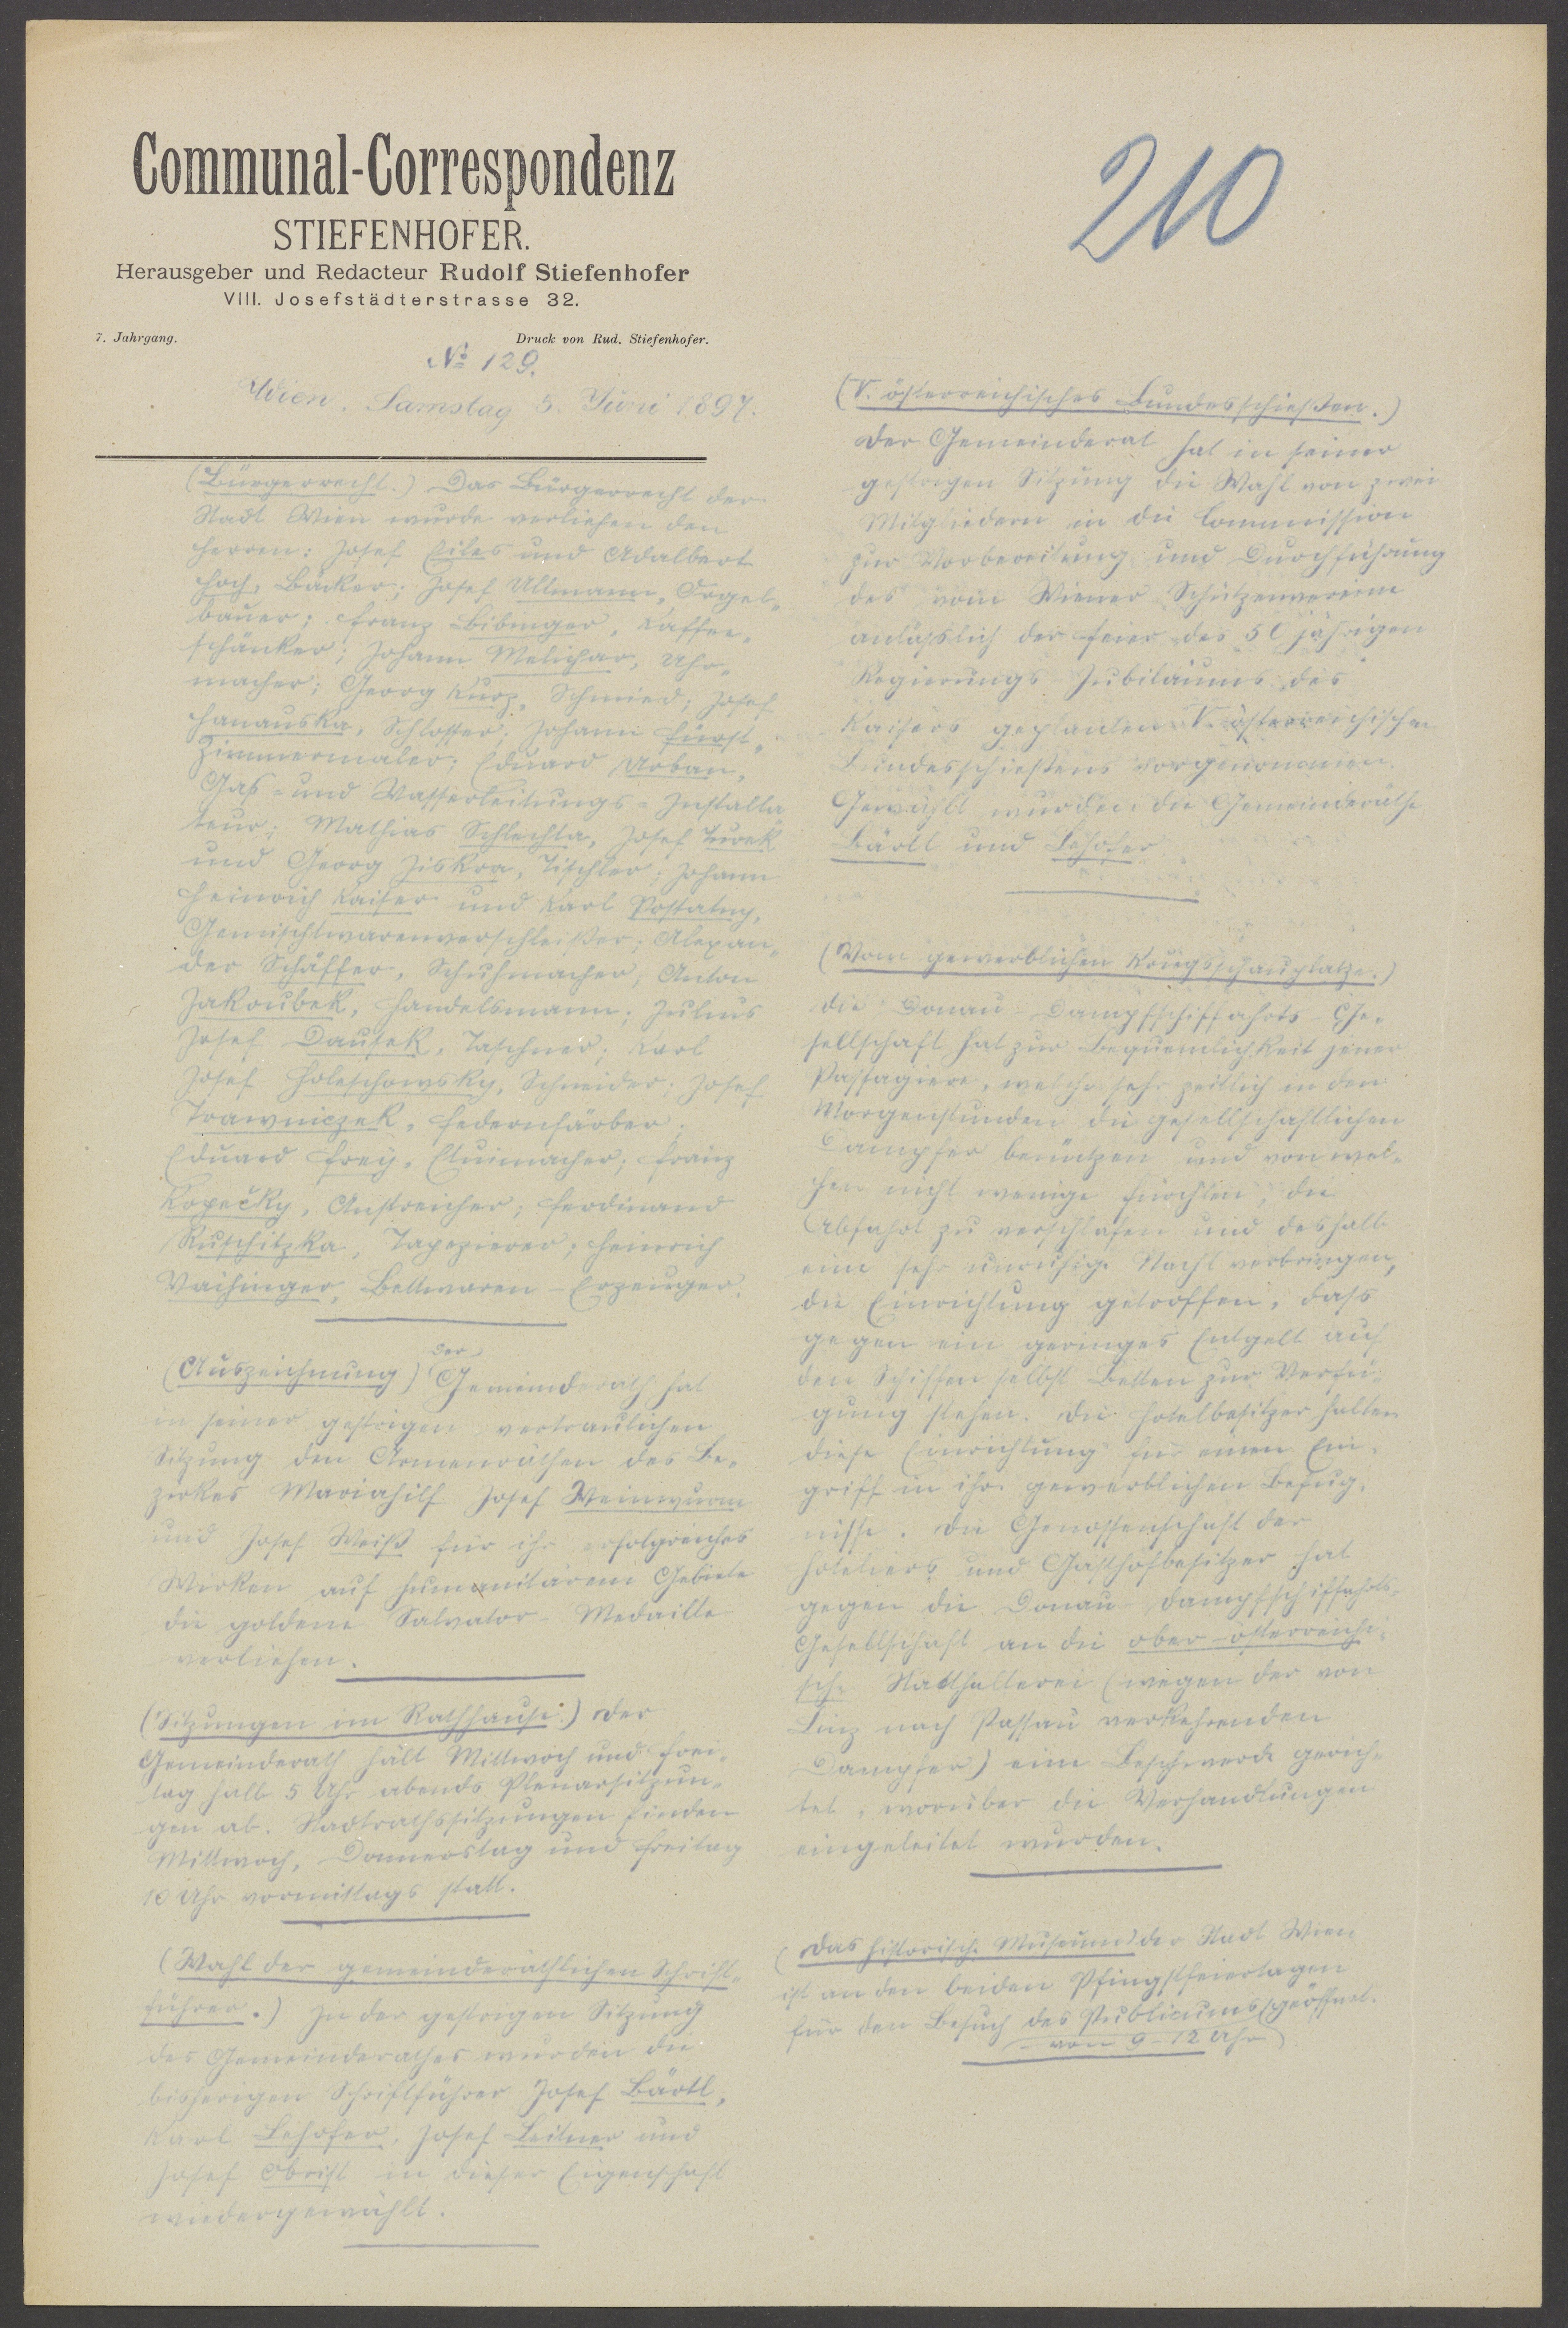 Communal-Correspondenz
STIEFENHOFER.
Herausgeber und Redacteur Rudolf Stiefenhofer
VIII. Josefstädterstrasse 32.
7. Jahrgang. Druck von Rud. Stiefenhofer.
№ 129.
Wien, Samstag 5. Juni 1897.
210
(Bürgerrecht.) Das Bürgerrecht der
Stadt Wien wurde verliehen den
Herren: Josef Eiles und Adalbert
Hoch, Bäcker; Josef Ullmann, Orgel„
bauer; Franz Bibinger, Kaffee„
schänker; Johann Melichar, Uhr„
macher; Georg Kurz, Schmied; Josef
Hanauska, Schlosser; Johann Fürst,
Zimmermaler; Eduard Urban,
Gas- und Wasserleitungs-Installa
teur; Mathias Schlechta, Josef Turek
und Georg Ziskra, Tischler; Johann
Heinrich Kaiser und Karl Postatny,
Gemischtwarenverschleißer; Alexan„
der Schäffer, Schuhmacher; Anton
Jakoubek, Handelsmann; Julius
Josef Dausek, Taschner; Karl
Josef Holeschowsky, Schneider; Josef
Trawniczek, Federnfärber;
Eduard Frey, Etuimacher; Franz
Kopečky, Anstreicher; Ferdinand
Ruschitzka, Tapezierer; Heinrich
Vaihinger, Bettwaren-Erzeuger.
(Auszeichnung) Der Gemeinderath hat
in seiner gestrigen vertraulichen
Sitzung den Armenräthen des Be„
zirkes Mariahilf Josef Weinwurm
und Josef Weiß für ihr erfolgreiches
Wirken auf humanitärem Gebiete
die goldene Salvator-Medaille
verliehen.
(Sitzungen im Rathhause.) Der
Gemeinderath hält Mittwoch und Frei„
tag halb 5 Uhr abends Plenarsitzun„
gen ab. Stadtrathssitzungen finden
Mittwoch, Donnerstag und Freitag
10 Uhr vormittags statt.
(Wahl der gemeinderäthlichen Schrift„
führer.) In der gestrigen Sitzung
des Gemeinderathes wurden die
bisherigen Schriftführer Josef Bärtl,
Karl Lehofer, Josef Leitner und
Josef Obrist in dieser Eigenschaft
wiedergewählt.
(V. österreichisches Bundesschießen.)
Der Gemeinderat hat in seiner
gestrigen Sitzung die Wahl von zwei
Mitgliedern in die Commission
zur Vorbereitung und Durchführung
des vom Wiener Schützenvereine
anläßlich der Feier des 50 jährigen
Regierungs-Jubiläums des
Kaisers geplanten V. österreichischen
Bundesschießens vorgenommen.
Gewählt wurden: die Gemeinderäthe
Bärtl und Lehofer.
(Vom gewerblichen Kriegsschauplatze.)
Die Donau-Dampfschiffahrts-Ge„
sellschaft hat zur Bequemlichkeit jener
Passagiere, welche sehr zeitlich in den
Morgenstunden die gesellschaftlichen
Dampfer benützen und von wel„
chen nicht wenige fürchten, die
Abfahrt zu verschlafen und deshalb
eine sehr unruhige Nacht verbringen,
die Einrichtung getroffen, dass
gegen ein geringes Entgelt auf
den Schiffen selbst Betten zur Verfü„
gung stehen. Die Hotelbesitzer halten
diese Einrichtung für einen Ein„
griff in ihre gewerblichen Befug„
nisse. Die Genossenschaft der
Hoteliers und Gasthofbesitzer hat
gegen die Donau-Dampfschiffahrts-
Gesellschaft an die ober-österreichi„
sche Statthalterei (wegen der von
Linz nach Passau verkehrenden
Dampfer) eine Beschwerde gerich„
tet, worüber die Verhandlungen
eingeleitet wurden.
(Das historische Museum) der Stadt Wien
ist an den beiden Pfingstfeiertagen
für den Besuch des Publicums geöffnet.
von 9-12 Uhr